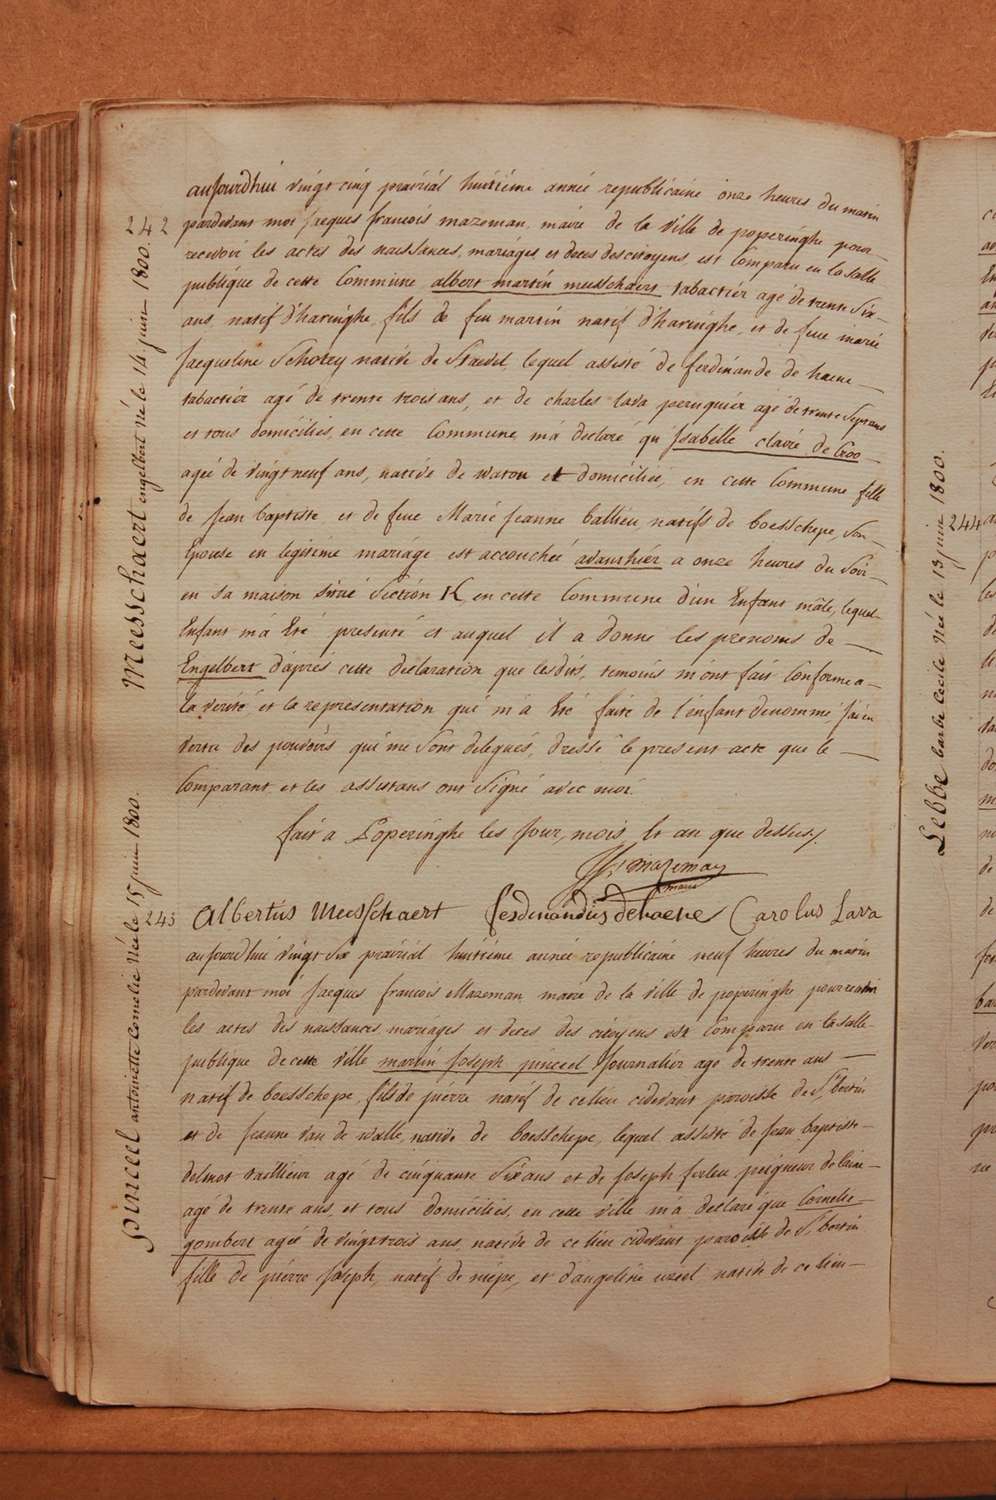 aujourdhui vingt cinq prairial huitiéme année republicaine onze heures du matin
242
pardevant moi Jacques francois mazeman, maire de la ville de poperinghe pour
recevoir les actes des naissances, mariages, et deces des citoyens, est Comparu en la salle
publique de cette Commune albert martin meesschaert tabactier agé de trente six
ans, natif d'haringhe, fils de feu martin natif d'haringhe, et de feue marie
Jacqueline Schotey native de Staedel, lequel assisté de ferdinande de haene
tabactier agé de trente trois ans, et de charles lava peruquier agé de trente Sept ans
et tous domiciliés, en cette Commune, m'a declaré qu Isabelle claire de Croo
agée de vingt neuf ans, native de watou et domiciliée, en cette Commune fille
de Jean baptiste et de feue Marie Jeanne ballieu natifs de boesschepe, Son
Epouse en legitime mariage est accouchée avanthier a onze heures du Soir
en sa maison Situé Section K, en cette Commune d'un Enfant mâle, lequel
Enfant m'a Eté presenté et auquel il a donne les prenoms de
Engelbert d'apres cette declaration que lesdits, temoins m'ont fait Conforme a
la verité et la representation qui m'a Eté faite de l'enfant denommé J'ai en
vertu des pouvoirs qui me Sont delegués, dressé le present acte que le
Comparant et les assistans ont Signé avec moi.
fait a Poperinghe les Jour, mois, Et an que dessus,
J. f. mazeman
maire
Albertus Meesschaert ferdinandus dehaene Carolus Lava
243
aujourdhui vingt Six prairial huitiéme année republicaine neuf heures du matin
pardevant moi Jacques francois Mazeman, maire de la ville de poperinghe pour recevoir
les actes des naissances, mariages et deces des citoyens est Comparu en la Salle
publique de cette ville martin Joseph pinceel Journalier agé de trente ans
natif de boesschepe, fils de pierre natif de ce lieu cidevant paroisse de S. bertin
et de Jeanne van de walle, native de boesschepe, lequel assisté de Jean baptiste
delmot taillieur agé de cinquante Six ans et de Joseph peigneur de laine
agé de trente ans, et tous domiciliés, en cette ville m'a declaré que Cornelie
gombert agée de vingt trois ans, native de ce lieu cidevant paroisse de S. bertin
fille de pierre Joseph, natif de niepe, et d'angeline native de ce lieu
Meesschaert engelbert Né le 14 juin 1800.
pinceel antoinette Cornelie Née le 15 juin 1800.
Lebbe barbe Cecile Née le 13 juin 1800.
244